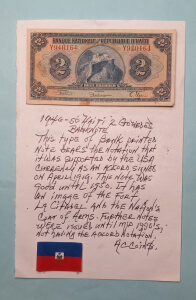 BANQUE NATIONALE DE LA RÉPUBLIQUE D'HAITI
Y946164 Y946164
2 2
1946-50 HAITI 2 GOURDES
BANKNOTE
THIS TYPE OF BANK PRINTED
NOTE BEARS THE NOTATION THAT
IT WAS SUPPORTED BY THE USA
CURRENCY AS AN ACCORD SIGNED
ON APRIL 1919. THIS NOTE WAS
GOOD UNTIL 1950. IT HAS
AN IMAGE OF THE FORT
LA CITADEL AND THE NATION'S
COAT OF ARMS. FURTHER NOTES
WERE ISSUED UNTIL MID 1950'S,
NOT BEARING THE ACCORD NOTATION